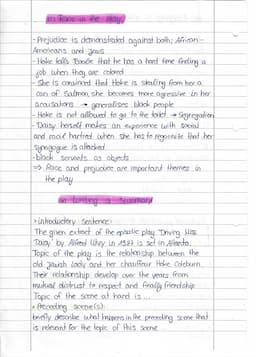 ⇒ Race in the play
- Prejudice is demonstrated against both; African-
Americans and Jews
- Hoke tells Boolie that he has a hard time finding a
job when they are colored
- She is convinced that Hoke is stealing from her a
can of Salmon, she becomes more agressive in her
accusations → generalises black people
- Hoke is not allowed to go to the toilet → Segregation
- Daisy herself makes an experience with social
and racial hatred when she has to recognize that her
synagogue is attacked
- black servants as objects
⇒ Race and prejudice are important themes in
the play
⇒ Writing a Summary
• introductory sentence:
The given extract of the episodic play "Driving Miss
Daisy" by Alfred Uhry in 1987 is set in Atlanta.
Topic of the play is the relationship between the
old Jewish lady and her chauffeur Hoke Coleburn.
Their relationship develop over the years from
mutual distrust to respect and finally friendship
Topic of the scene at hand is ...
• Preceding scene(s):
briefly describe what happens in the preceding scene that
is relevant for the topic of this scene